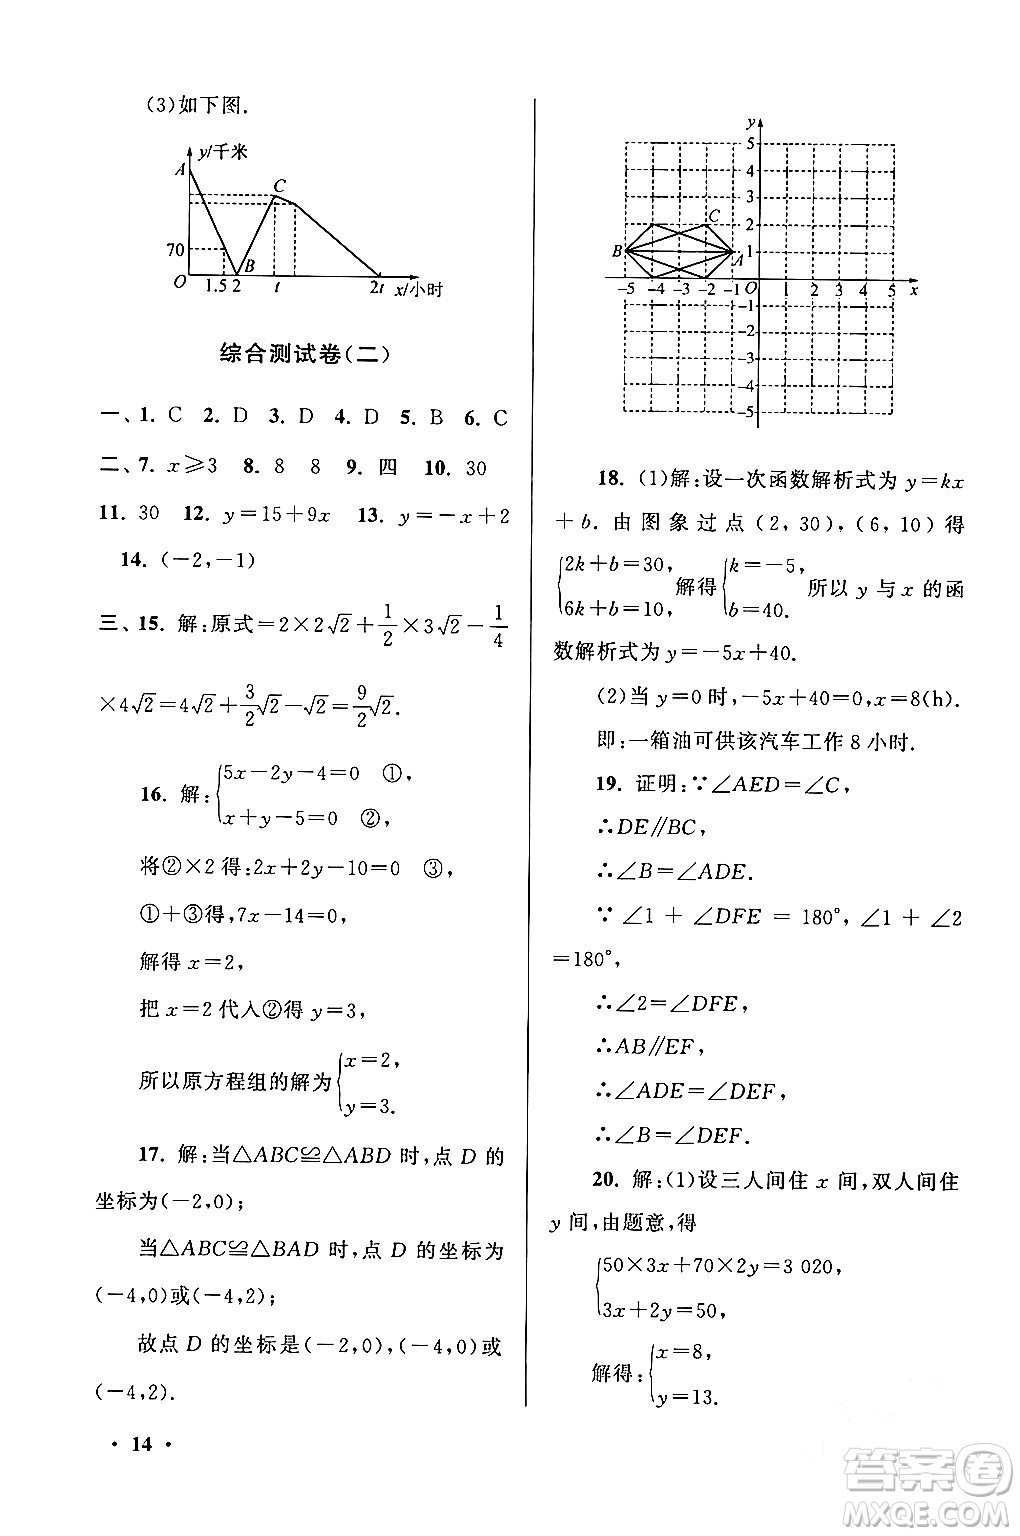 (3)如下图.
y/千米
A
C
70
B
O 1.5 2 t 2t x/小时
综合测试卷(二)
一、1. C 2. D 3. D 4. D 5. B 6. C
二、7. x≥3 8. 8 8 9. 四 10. 30
11. 30 12. y=15+9x 13. y=-x+2
14. (-2,-1)
三、15. 解:原式=2×2√2+1/2×3√2-1/4
×4√2=4√2+3/2√2-√2=9/2√2.
16. 解:{5x-2y-4=0 ①,
x+y-5=0 ②,
将②×2得:2x+2y-10=0 ③,
①+③得,7x-14=0,
解得 x=2,
把 x=2 代入②得 y=3,
所以原方程组的解为{x=2,
y=3.
17. 解:当△ABC≌△ABD 时,点 D 的
坐标为(-2,0);
当△ABC≌△BAD 时,点 D 的坐标为
(-4,0)或(-4,2);
故点 D 的坐标是(-2,0),(-4,0)或
(-4,2).
· 14 ·
y
5
4
3
2
1
C
B
A
-5 -4 -3 -2 -1 O 1 2 3 4 5 x
-1
-2
-3
-4
-5
18. (1)解:设一次函数解析式为 y=kx
+b. 由图象过点(2,30),(6,10)得
{2k+b=30,
6k+b=10,
解得{k=-5,
b=40.
所以 y 与 x 的函
数解析式为 y=-5x+40.
(2)当 y=0 时,-5x+40=0,x=8(h).
即:一箱油可供该汽车工作 8 小时.
19. 证明:∵∠AED=∠C,
∴DE∥BC,
∴∠B=∠ADE.
∵∠1+∠DFE=180°,∠1+∠2
=180°,
∴∠2=∠DFE,
∴AB∥EF,
∴∠ADE=∠DEF,
∴∠B=∠DEF.
20. 解:(1)设三人间住 x 间,双人间住
y 间,由题意,得
{50×3x+70×2y=3 020,
3x+2y=50,
解得:{x=8,
y=13.
答案卷
MXQE.COM